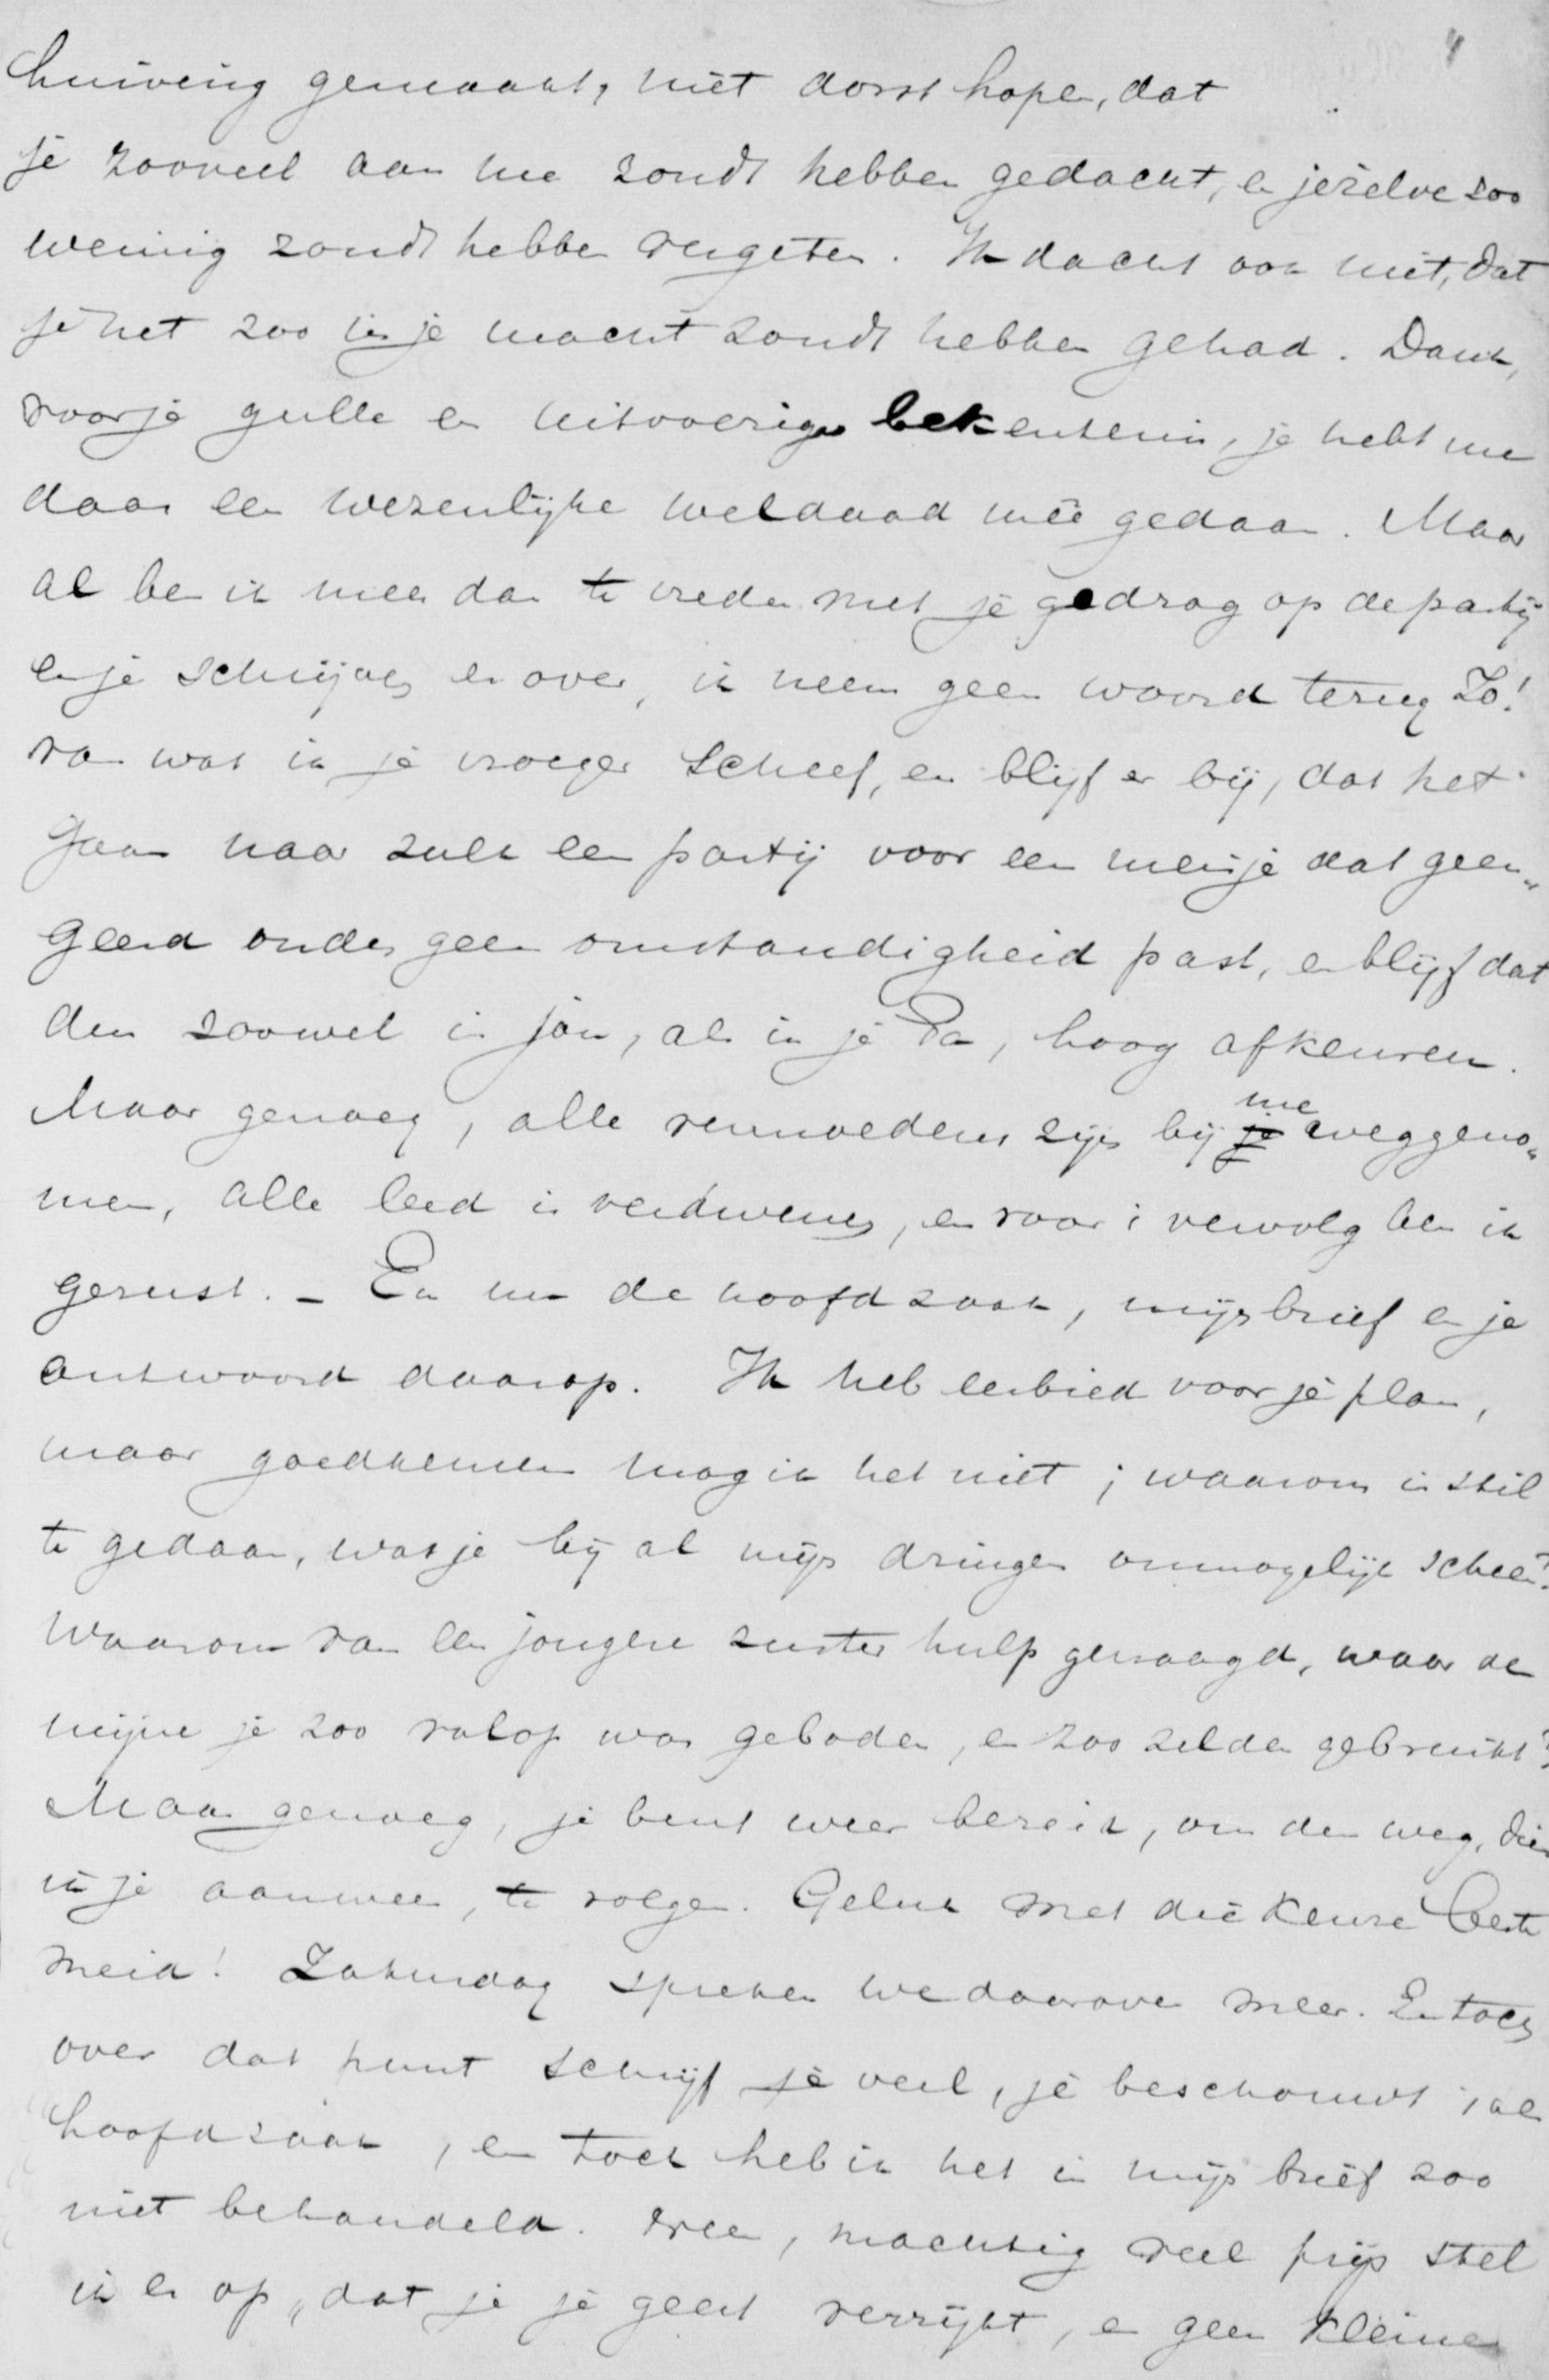 huivering gemaakt, niet dorst hopen, dat
je zooveel aan me zoudt hebben gedacht, en jezelve zoo
weinig zoudt hebben vergeten. Ik dacht ook niet, dat
je het zoo in je macht zoudt hebben gehad. Dank,
voor je gulle en uitvoerige bekentenis, je hebt me
daar een wezenlijke weldaad mêe gedaan. Maar
al ben ik meer dan te vreden met je gedrag op de partij
en je schrijven er over, ik neem geen woord terug Zo!
van wat ik je vroeger schreef, en blijf er bij, dat het
gaan naar zulk een partij voor een meisje dat geen„
geerd onder geen omstandigheid past, en blijf dat
dus zoowel in jou, als in je Pa, hoog afkeuren.
Maar genoeg, alle vermoedens zijn bij je me weggeno„
men, alle leed is verdwenen, en voor 't vervolg ben ik
gerust. – En nu de hoofdzaak, mijn brief en je
antwoord daarop. Ik heb eerbied voor je plan,
maar goedkeuren mag ik het niet; waarom in stil
te gedaan, wat je bij al mijn dringen onmogelijk scheen?
Waarom van een jongere zuster hulp gevraagd, waar de
mijne je zoo volop was geboden, en zoo zelden gebruikt?
Maar genoeg, je bent weer bereid, om den weg, dien
ik je aanwees, te volgen. Geluk met die keuze beste
meid! Zaturdag spreken we daarover meer. En toch
over dat punt schrijf je veel, je beschouwt 't als
hoofdzaak, en toch heb ik het in mijn brief zoo
niet behandeld. Neen, machtig veel prijs stel
ik er op, dat je je geest verrijkt, en geen kleine